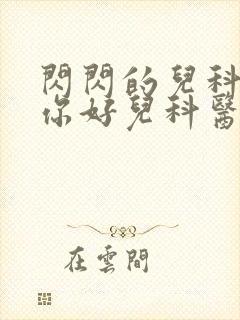 閃閃的兒科
你好兒科醫
在雲間